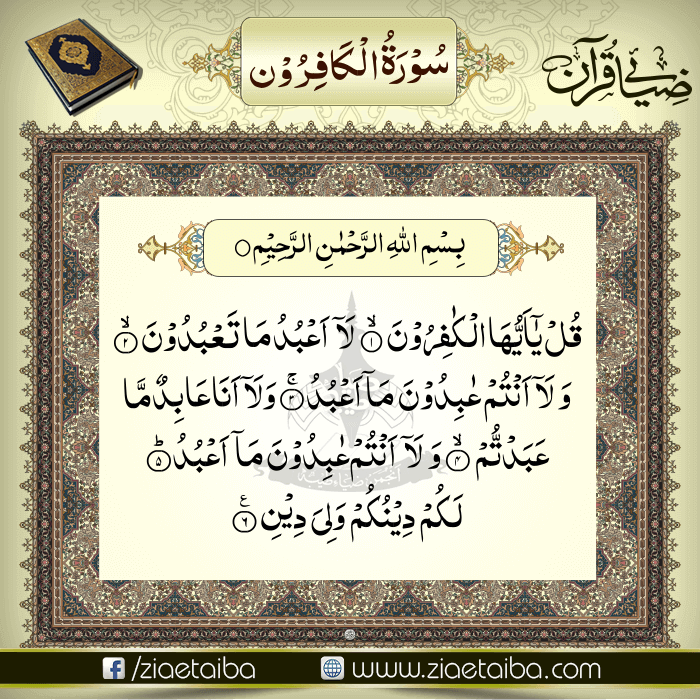 سُوْرَۃُ الْکَافِرُوْن
ضیائے قرآن
بِسْمِ اللہِ الرَّحْمٰنِ الرَّحِیْمِ ○
قُلْ یٰۤاَیُّهَا الْکٰفِرُوْنَ ۙ﴿۱﴾ لَاۤ اَعْبُدُ مَا تَعْبُدُوْنَ ۙ﴿۲﴾
وَ لَاۤ اَنْتُمْ عٰبِدُوْنَ مَاۤ اَعْبُدُ ۚ﴿۳﴾ وَلَاۤ اَنَا عَابِدٌ مَّا
عَبَدْتُّمْ ۙ﴿۴﴾ وَ لَاۤ اَنْتُمْ عٰبِدُوْنَ مَاۤ اَعْبُدُ ؕ﴿۵﴾
لَکُمْ دِیْنُکُمْ وَلِیَ دِیْنِ ﴿۶﴾ ع
/ziaetaiba www.ziaetaiba.com